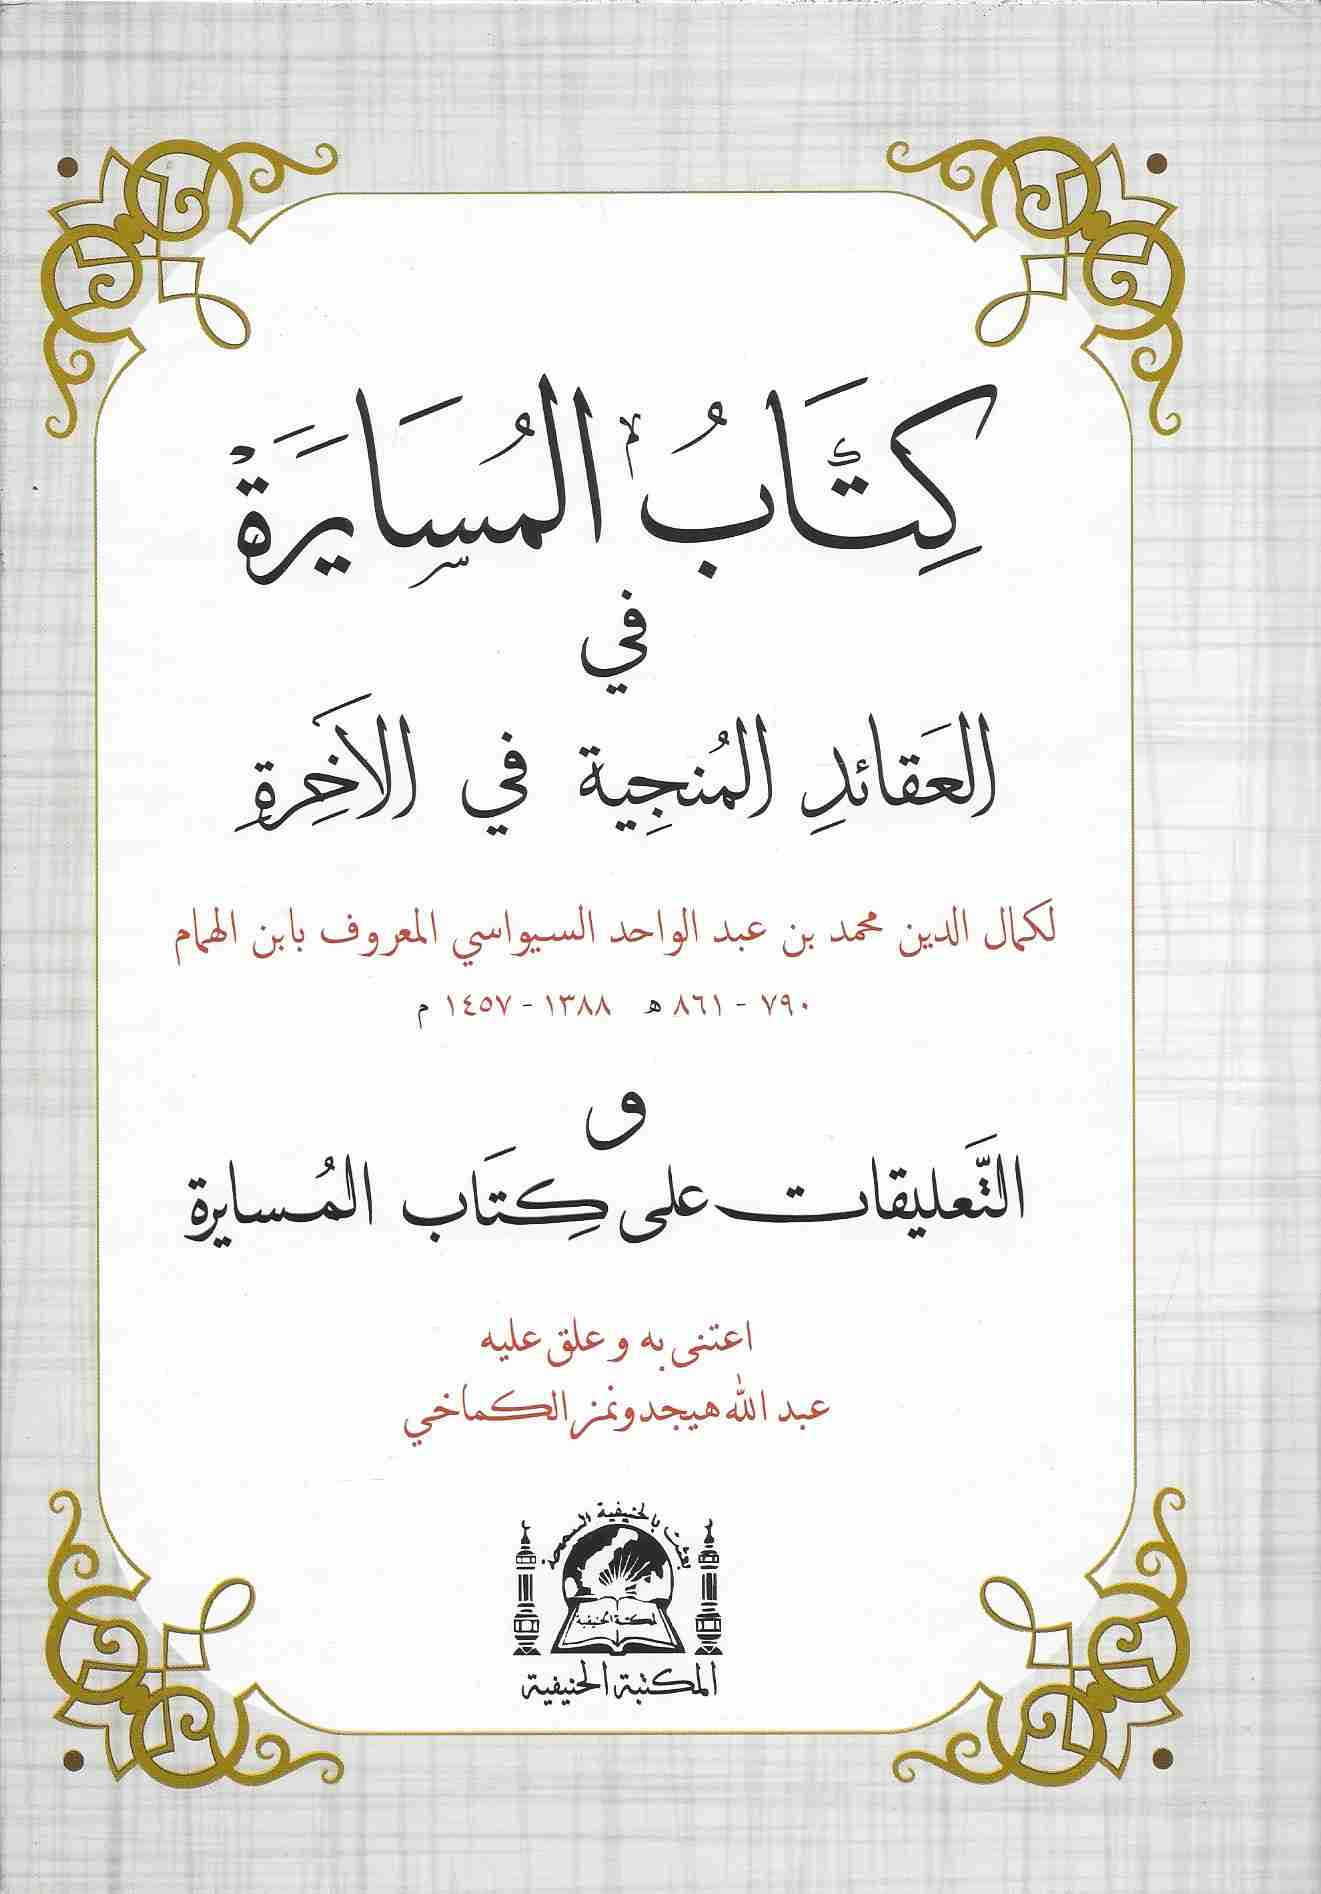 كِتَّابُ المُسَايَرَةْ
في
العَقَائدِ المُنجِية في الآخِرةِ
لكمال الدين محمد بن عبد الواحد السيواسي المعروف بابن الهمام
٧٩٠ - ٨٦١ ه ١٣٨٨ - ١٤٥٧ م
و
التَّعليقات على كِتَاب المُسايرة
اعتنى به و علق عليه
عبد الله هيجدونمز الكماخي
بعثت بالحنيفية السمحة
المكتبة الحنيفية
المكتبة الحنيفية